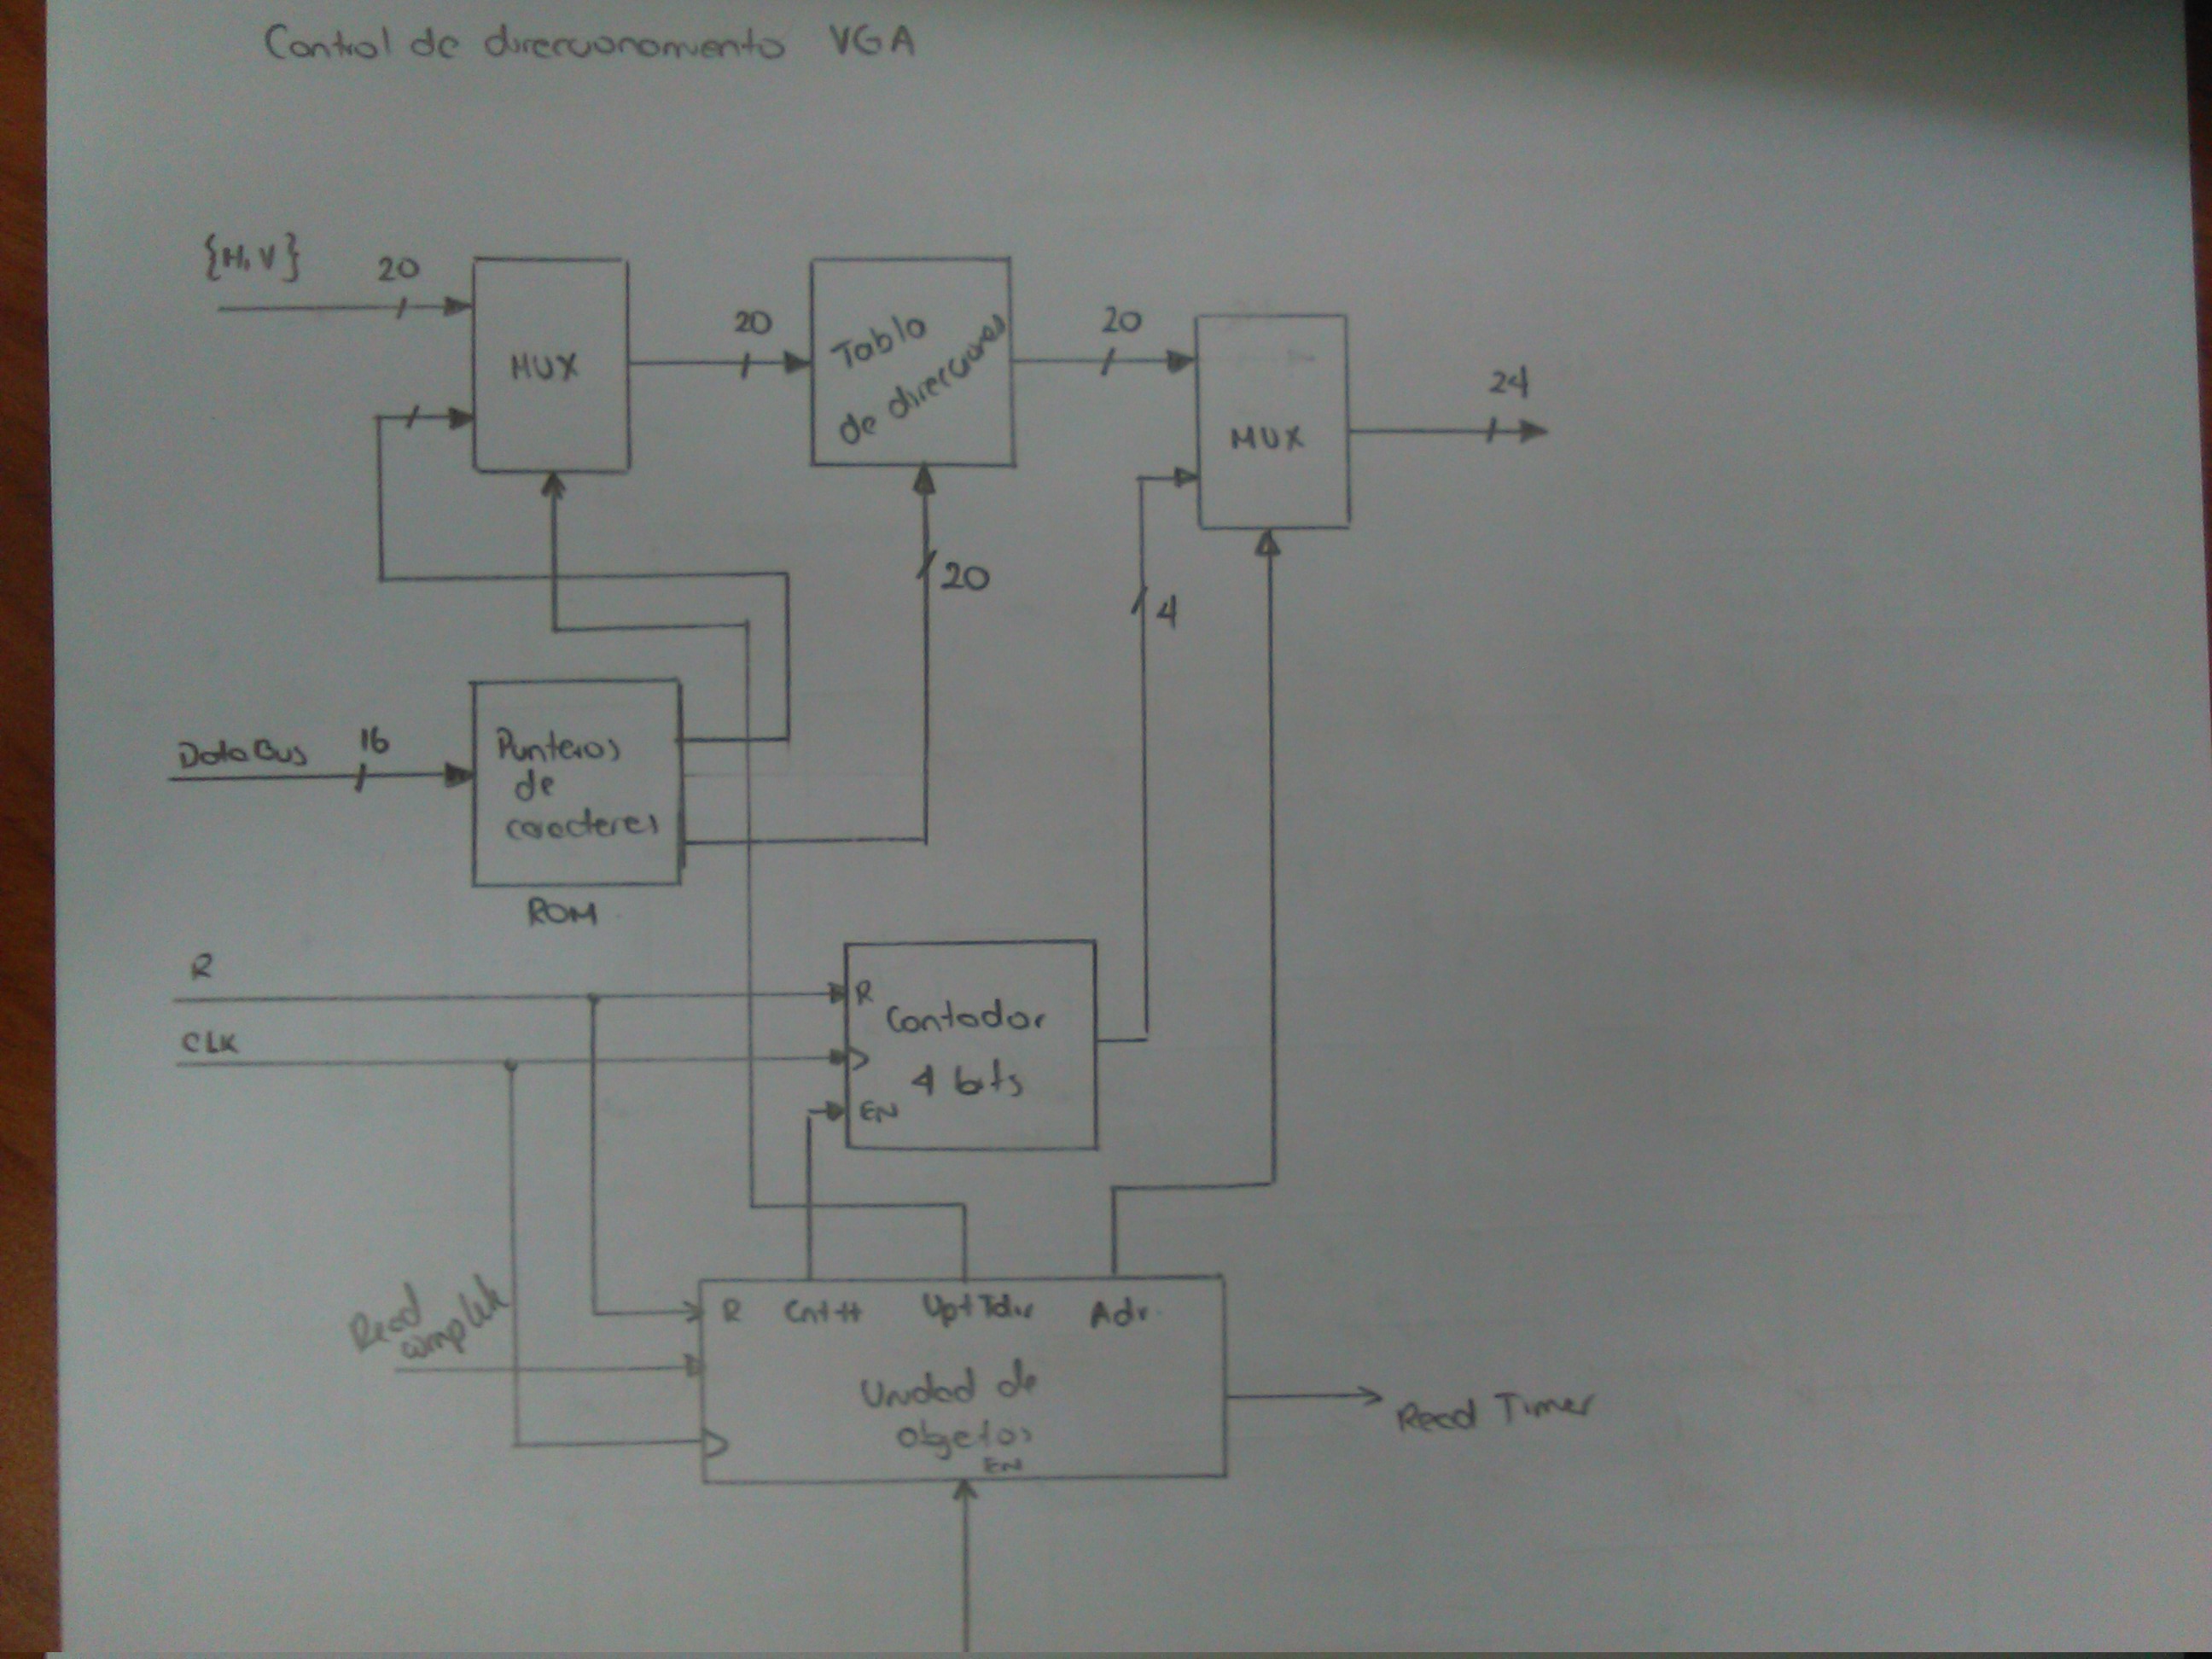 Control de direccionamiento VGA
{H,V}
20
MUX
20
Tabla
de direcciones
20
MUX
24
20
4
Data Bus
16
Punteros
de
caracteres
ROM
R
CLK
R
Contador
4 bits
EN
Read
complete
R
Cnt++
UptTdir
Adr.
Unidad de
objetos
EN
Read Timer